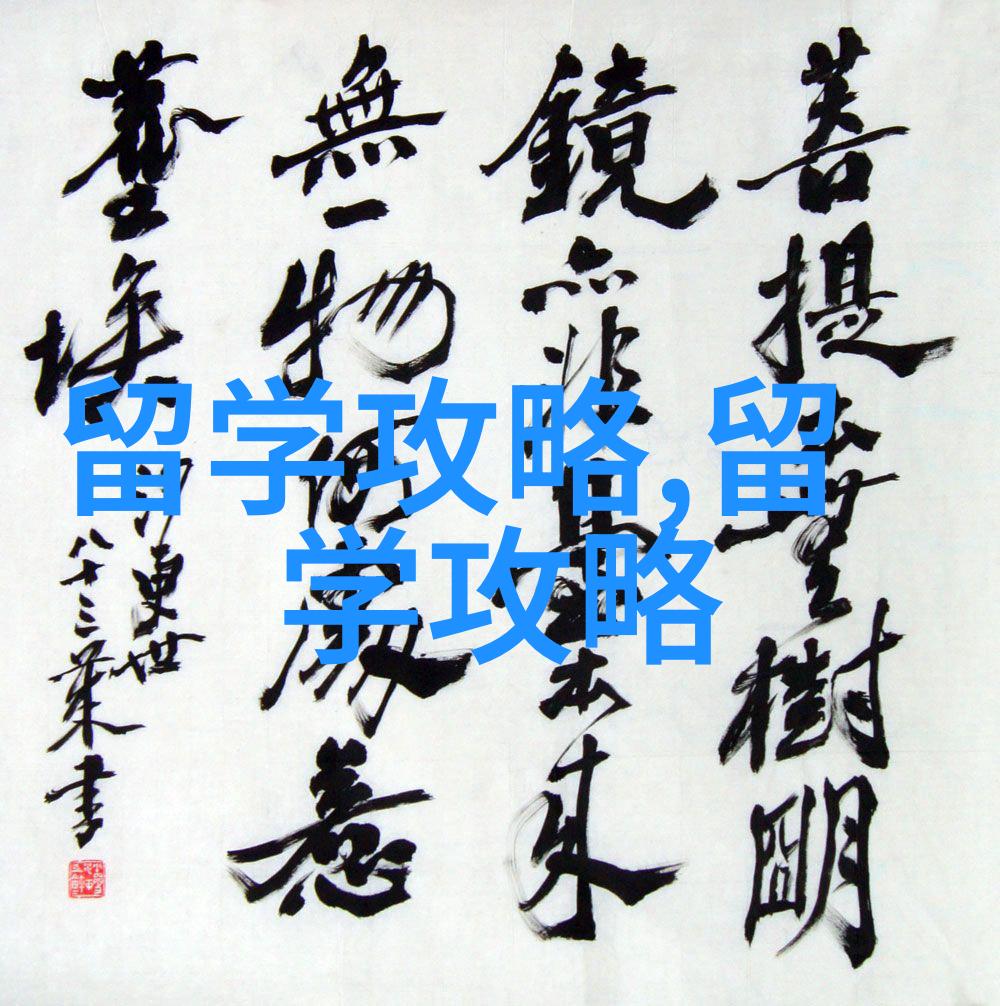 留学攻略,留
学攻略
菩提本無樹明
鏡亦非臺本来
無一物何處惹
塵埃
更世
八十三叶書